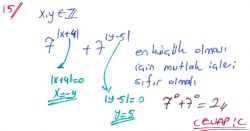 15/
x,y ∈ Z
7^|x+4| + 7^|y-5|
en küçük olması
için mutlak içleri
sıfır olmalı
|x+4|=0
x=-4
|y-5|=0
y=5
7^0+7^0=2//
CEVAP C